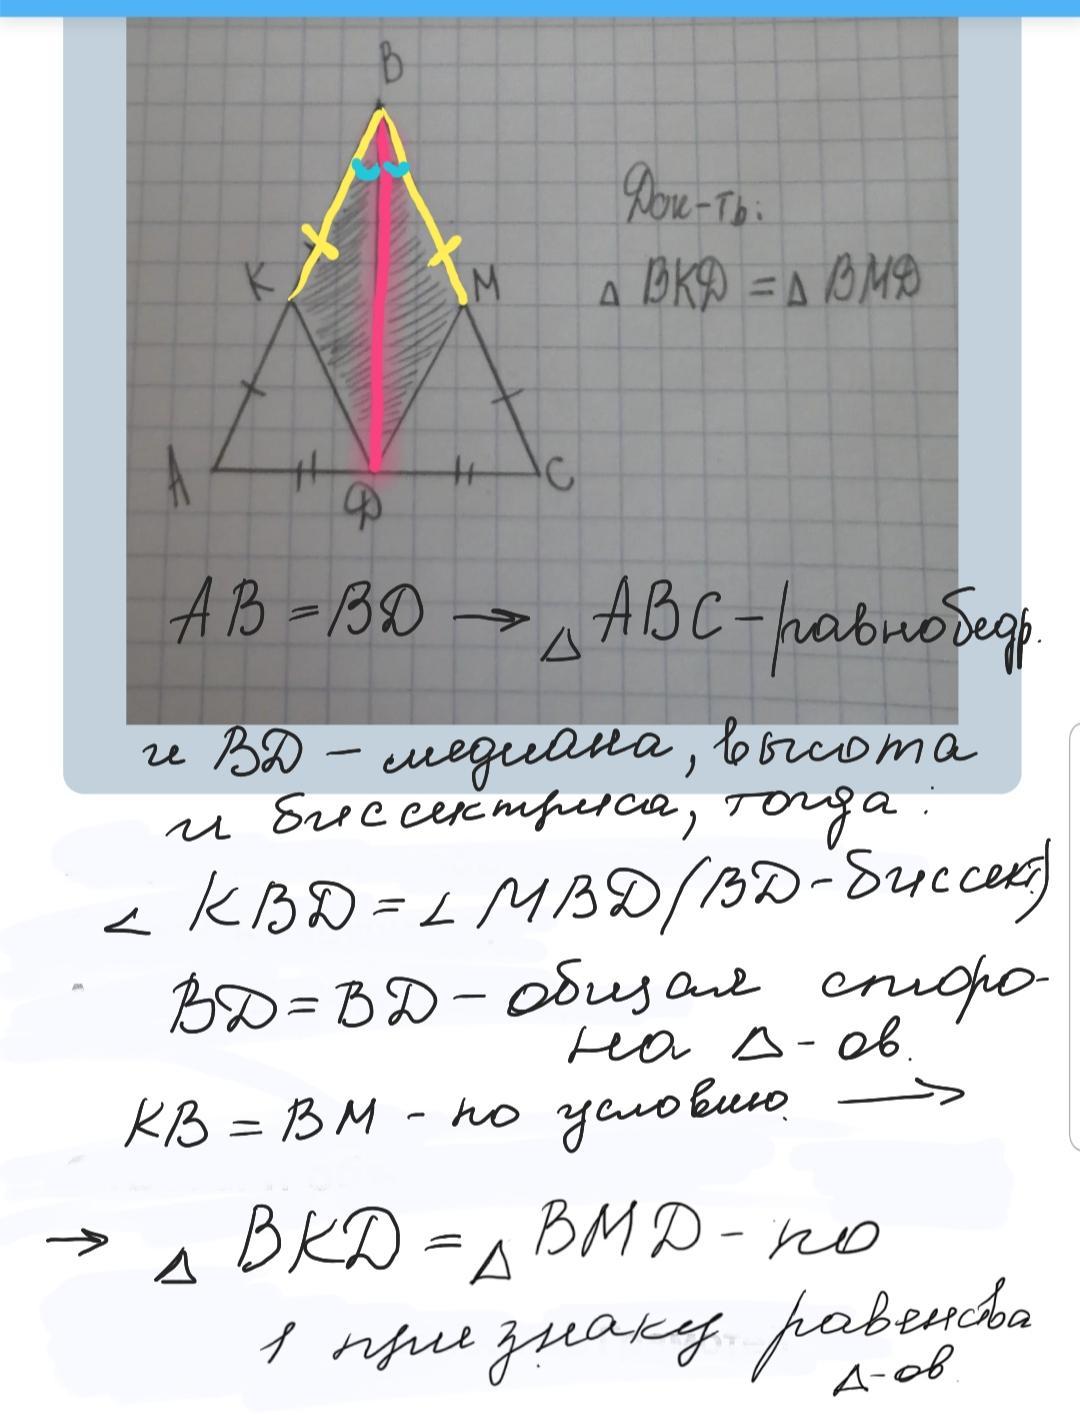 В
Док-ть:
К
М
△ ВКД = △ ВМД
А
С
Д
AB = BD → △ ABC - равнобедр.
и BD - медиана, высота
и биссектриса, тогда:
∠ KBD = ∠ MBD (BD - биссект)
BD = BD - общая сторо-
на △-ов.
KB = BM - по условию. →
→ △ BKD = △ BMD - по
1 признаку равенства
△-ов.